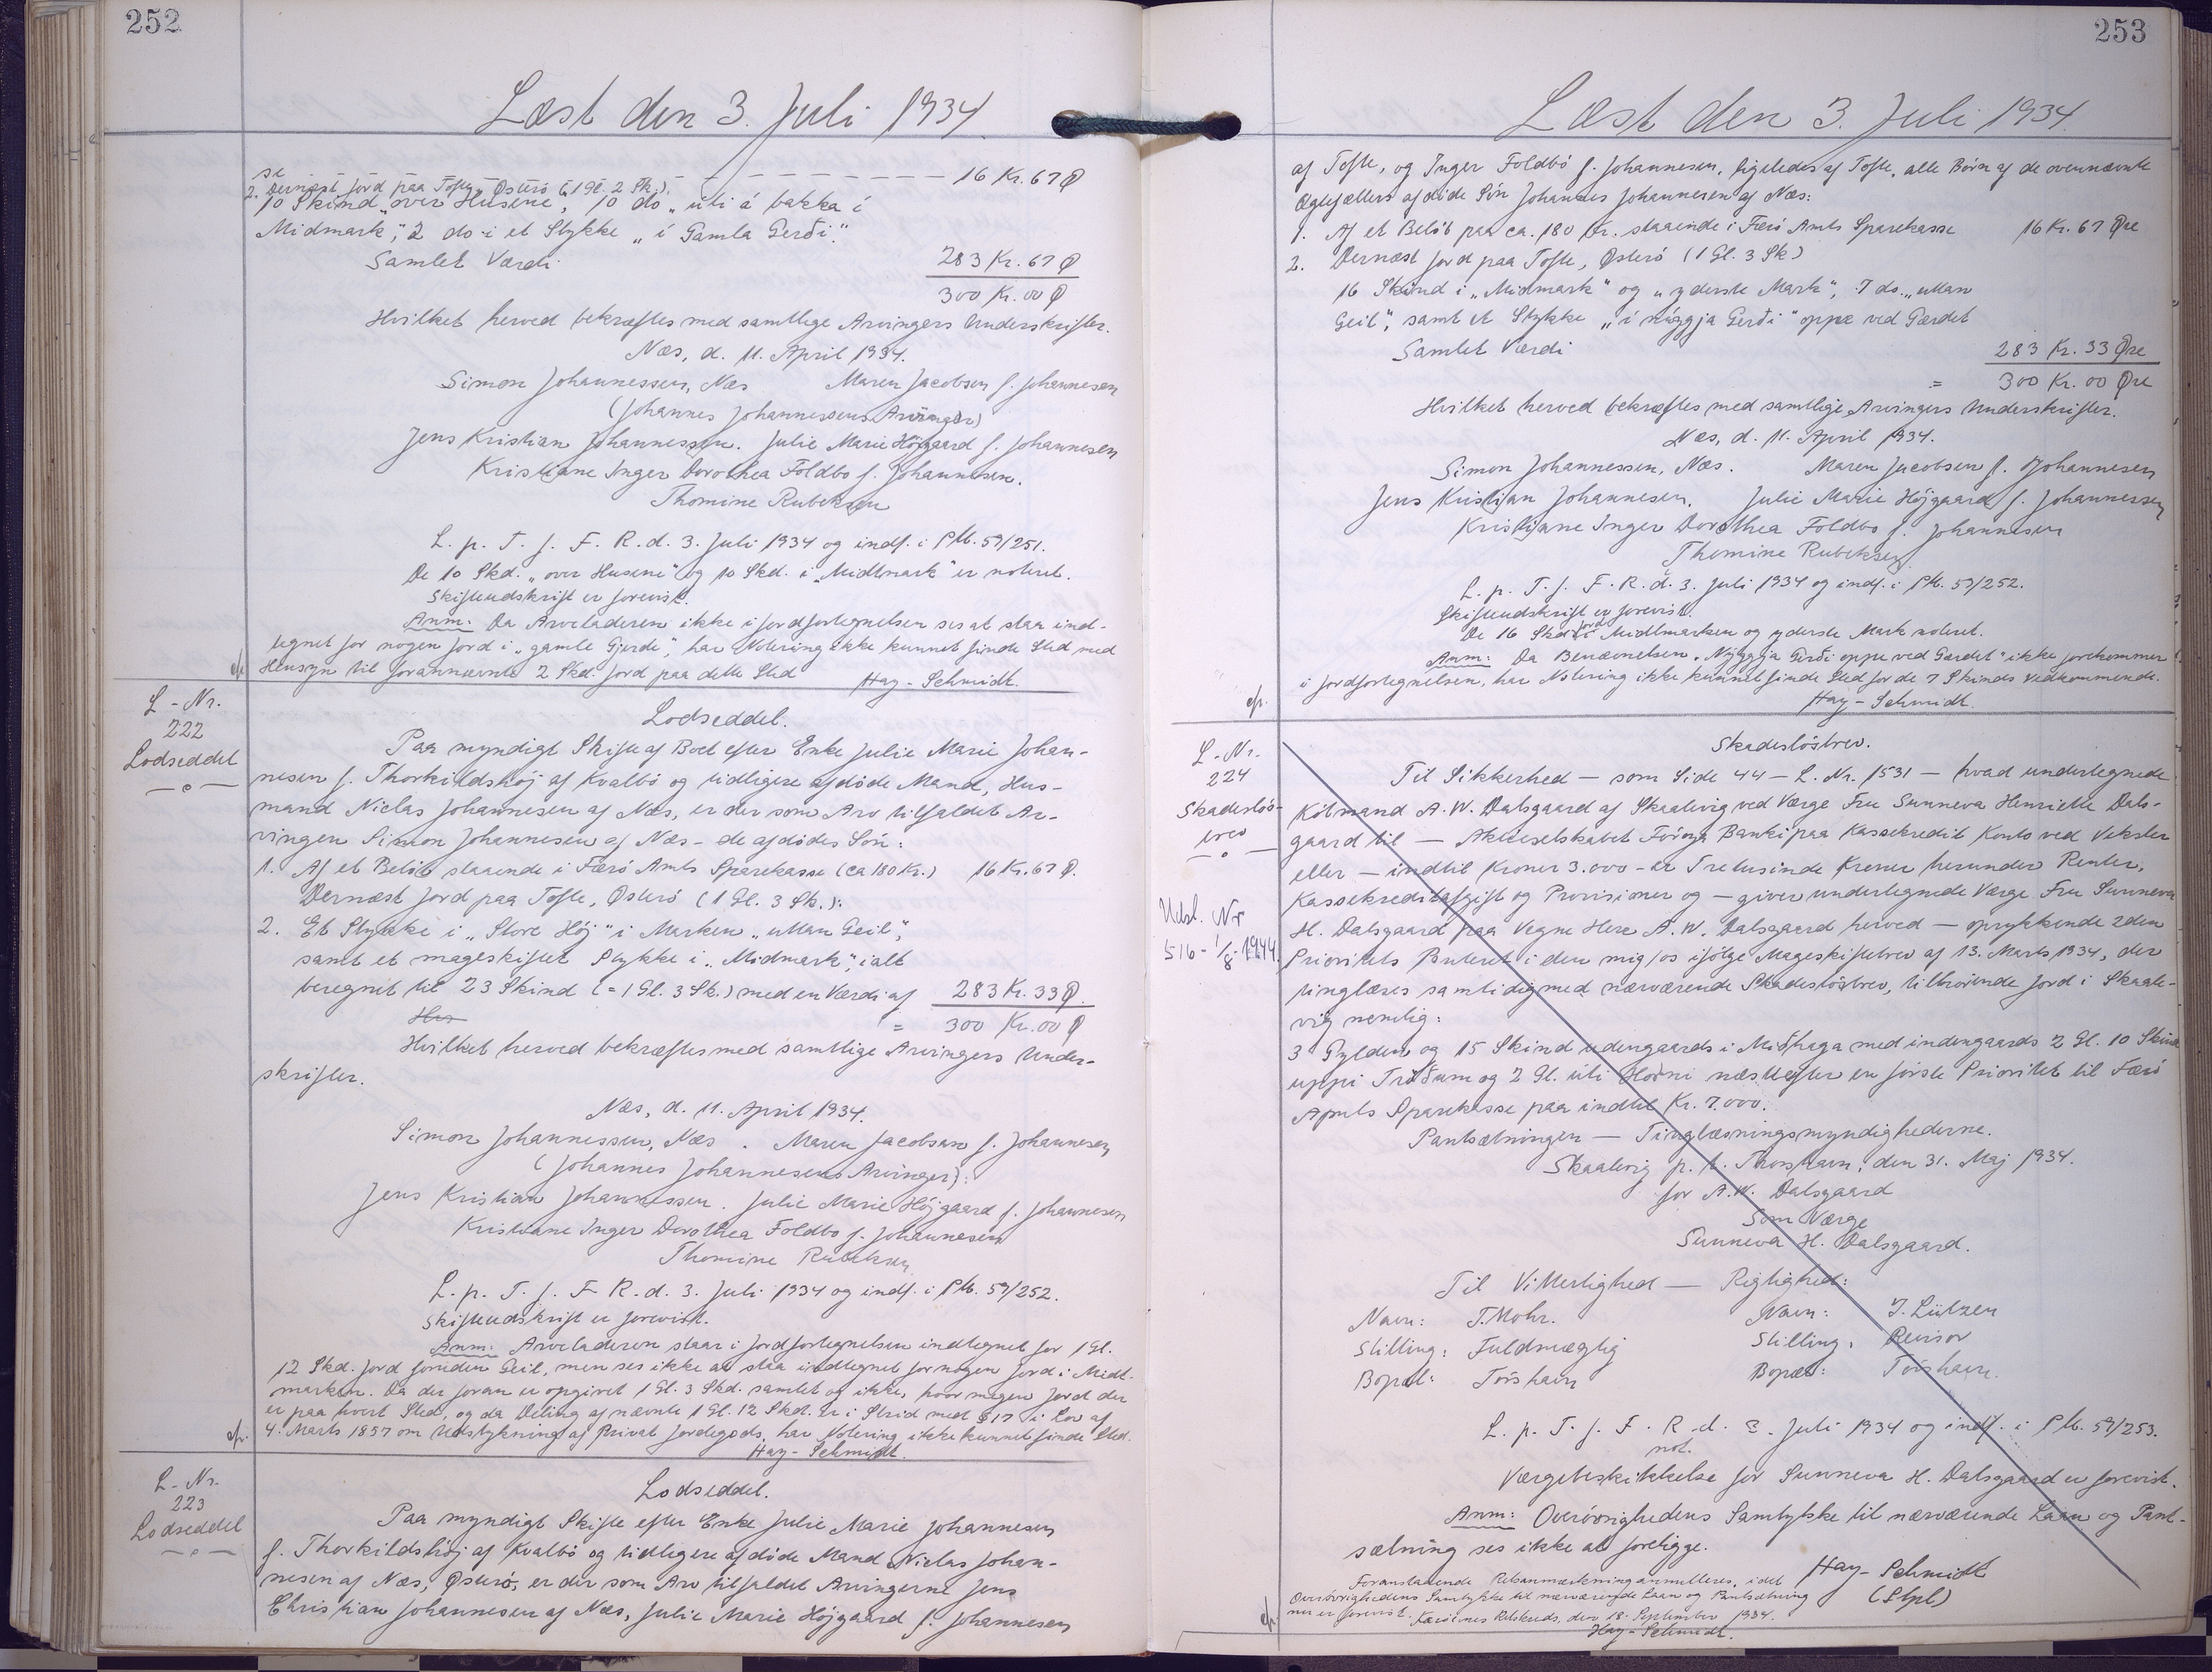 252
Læst den 3. Juli 1934.
se
2. Dernæst Jord paa Tofte, Østerö (1 Gl. 2 Sk.) 16 Kr. 67 Ø
10 Skind „over Husene", 10 do „úti á bakka í
Midmark", 2 do i et Stykke „í Gamla Gerði."
Samlet Værdi 283 Kr. 67 Ø
300 Kr. 00 Ø
Hvilket herved bekræftes med samtlige Arvingers Underskrifter.
Næs, d. 11. April 1934.
Simon Johannessen, Næs Maren Jacobsen f. Johannesen
(Johannes Johannessens Arvinger)
Jens Kristian Johannessen. Julie Marie Højgaard f. Johannesen
Kristiane Inger Dorothea Foldbo f. Johannesen.
Thomine Rubeksen
L. p. T. f. F. R. d. 3. Juli 1934 og indf. i PM. 59/251.
De 10 Skd. „over Husene" og 10 Skd. i „Midtmark" er noteret.
Skifteudskrift er forevist.
Anm: Da Arveladeren ikke i Jordfortegnelsen ses at staa ind-
tegnet for nogen Jord i „gamle Gjerde", har Notering ikke kunnet finde Sted med
Hensyn til forannævnte 2 Skd. Jord paa dette Sted
Hay-Schmidt.
L-Nr.
222
Lodseddel
Lodseddel.
Paa myndigt Skifte af Boet efter Enke Julie Marie Johan-
nesen f. Thorkildshöj af Kvalbö og tidligere afdöde Mand, Hus-
mand Niclas Johannesen af Næs, er der som Arv tilfaldet Ar-
vingen Simon Johannesen af Næs - de afdödes Sön:
1. Af et Belöb staaende i Færö Amts Sparekasse (ca 180 Kr.) 16 Kr. 67 Ø.
Dernæst Jord paa Tofte, Østerö (1 Gl. 3 Sk.):
2. Et Stykke i „Store Höj" i Marken „uttan Geil",
samt et mageskiftet Stykke i „Midmark", ialt
beregnet til 23 Skind (= 1 Gl. 3 Sk.) med en Værdi af 283 Kr. 33 Ø.
= 300 Kr. 00 Ø
Hvilket herved bekræftes med samtlige Arvingers Under-
skrifter.
Næs, d. 11. April 1934.
Simon Johannessen, Næs. Maren Jacobsen f. Johannesen
(Johannes Johannesens Arvinger):
Jens Kristian Johannessen. Julie Marie Höjgaard f. Johannesen
Kristiane Inger Dorothea Foldbo f. Johannesen
Thomine Rubeksen
L. p. T. f. F. R. d. 3. Juli 1934 og indf. i PM. 59/252.
Skifteudskrift er forevist.
Anm: Arveladeren staar i Jordfortegnelsen indtegnet for 1 Gl.
12 Skd. Jord foruden Geil, men ses ikke at staa indtegnet for nogen Jord i Midt-
marken. Da der foran er opgivet 1 Gl. 3 Skd. samlet og ikke, hvor megen Jord der
er paa hvert Sted, og da Deling af nævnte 1 Gl. 12 Skd. er i Strid med § 17 i Lov af
4. Marts 1857 om Udstykning af privat Jordegods, har Notering ikke kunnet finde Sted.
Hay-Schmidt.
L-Nr.
223
Lodseddel
Lodseddel.
Paa myndigt Skifte efter Enke Julie Marie Johannesen
f. Thorkildshöj af Kvalbö og tidligere afdöde Mand Niclas Johan-
nesen af Næs, Østerö, er der som Arv tilfaldet Arvingerne Jens
Christian Johannesen af Næs, Julie Marie Höjgaard f. Johannesen
253
Læst den 3. Juli 1934.
af Tofte, og Inger Foldbö f. Johannesen, ligeledes af Tofte, alle Börn af de ovennævnte
Ægtefællers afdöde Sön Johannes Johannesen af Næs:
1. Af et Belöb paa ca. 180 Kr. staaende i Færö Amts Sparekasse 16 Kr. 67 Øre
2. Dernæst Jord paa Tofte, Østerö (1 Gl. 3 Sk)
16 Skind i „Midmark" og „yderste Mark", 7 do. „uttan
Geil", samt et Stykke „í nýggja Gerði" oppe ved Gærdet
Samlet Værdi 283 Kr. 33 Øre
= 300 Kr. 00 Øre
Hvilket herved bekræftes med samtlige Arvingers Underskrifter.
Næs, d. 11. April 1934.
Simon Johannessen, Næs. Maren Jacobsen f. Johannesen
Jens Kristian Johannesen. Julie Marie Höjgaard f. Johannessen
Kristiane Inger Dorothea Foldbo f. Johannesen
Thomine Rubeksen
L. p. T. f. F. R. d. 3. Juli 1934 og indf. i PM. 59/252.
Skifteudskrift er forevist.
De 16 Skd. Jord i Midtmarken og yderste Mark noteret.
Anm: Da Benævnelsen „Nýggja Gerði oppe ved Gærdet" ikke forekommer
i Jordfortegnelsen, har Notering ikke kunnet finde Sted for de 7 Skinds Vedkommende.
Hay-Schmidt.
L-Nr.
224
Skadeslös-
brev
Udsl. Nr
516 - 1/8-1944.
Skadeslösbrev.
Til Sikkerhed — som Side 44 - L. Nr. 1531 — hvad undertegnede
Köbmand A. W. Dalsgaard af Skaalevig ved Værge Fru Sunneva Henriette Dals-
gaard til — Aktieselskabet Föroya Banki paa Kassekredit Konto ved Veksler
eller — indtil Kroner 3.000 - er Tretusinde Kroner herunder Renter,
Kassekreditafgift og Provisioner og — giver undertegnede Værge Fru Sunneva
H. Dalsgaard paa Vegne Herr A. W. Dalsgaard herved — oprykkende 2den
Prioritets Panteret i den mig/os ifölge Mageskiftebrev af 13. Marts 1934, der
tinglæses samtidig med nærværende Skadeslösbrev, tilhörende Jord i Skaale-
vig nemlig:
3 Gylden og 15 Skind udengaards i Miðhaga med indengaards 2 Gl. 10 Skind
uppi Tröðum og 2 Gl. úti Horni næstefter en förste Prioritet til Færö
Amts Sparekasse paa indtil Kr. 7.000.
Pantsætningen — Tinglæsningsmyndighederne.
Skaalevig p. t. Thorshavn, den 31. Maj 1934.
for A. W. Dalsgaard
Som Værge
Sunneva H. Dalsgaard.
Til Vitterlighed — Rigtighed:
Navn: T. Mohr. Navn: J. Lützen
Stilling: Fuldmægtig Stilling: Revisor
Bopæl: Tórshavn Bopæl: Tórshavn.
L. p. T. f. F. R. d. 3. Juli 1934 og indf. i PM. 59/253.
not.
Værgebeskikkelse for Sunneva H. Dalsgaard er forevist.
Anm: Overövrighedens Samtykke til nærværende Laan og Pant-
sætning ses ikke at foreligge.
Hay-Schmidt
(Stpl)
Foranstaaende Retsanmærkning annulleres, idet
Overövrighedens Samtykke til nærværende Laan og Pantsætning
nu er forevist. Færöernes Retskreds, den 18. September 1934.
Hay-Schmidt.